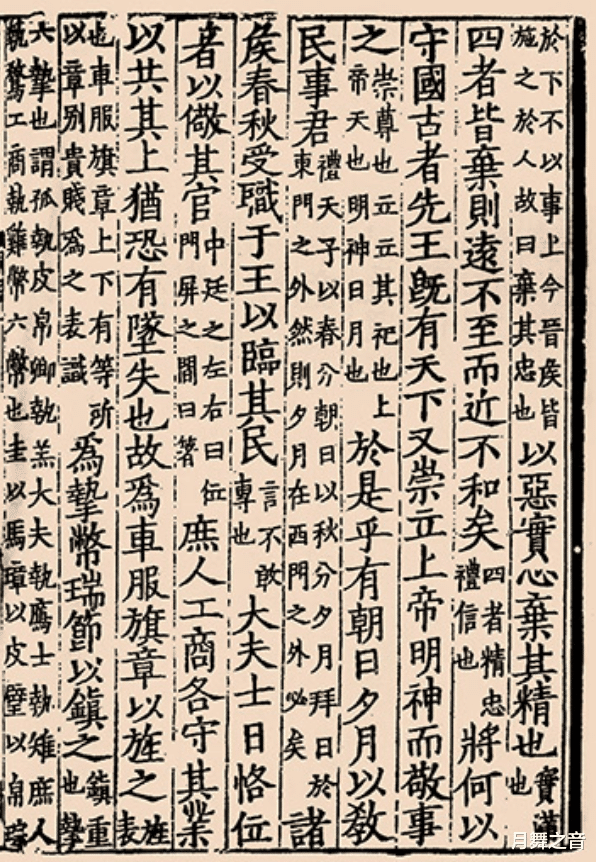 於下不以事上今晉侯皆施之於人故曰棄其忠也以惡實心棄其精也實滿也
四者皆棄則遠不至而近不和矣四者精忠禮信也將何以
守國古者先王旣有天下又崇立上帝明神而敬事
之崇尊也立立其祀也上帝天也明神日月也於是乎有朝日夕月以敎
民事君禮天子以春分朝日以秋分夕月拜日於東門之外然則夕月在西門之外必矣諸
矦春秋受職于王以臨其民言不敢專也大夫士日恪位
者以儆其官中廷之左右曰位門屏之間曰箸庶人工商各守其業
以共其上猶恐有墜失也故爲車服旗章以旌之旌表
也車服旗章上下有等所以章别貴賤爲之表識爲摯幣瑞節以鎮之鎮重也摯
六摯也謂孤執皮帛卿執羔大夫執鴈士執雉庶人執鶩工商執雞幣六幣也圭以馬璋以皮璧以帛琮
月舞之音